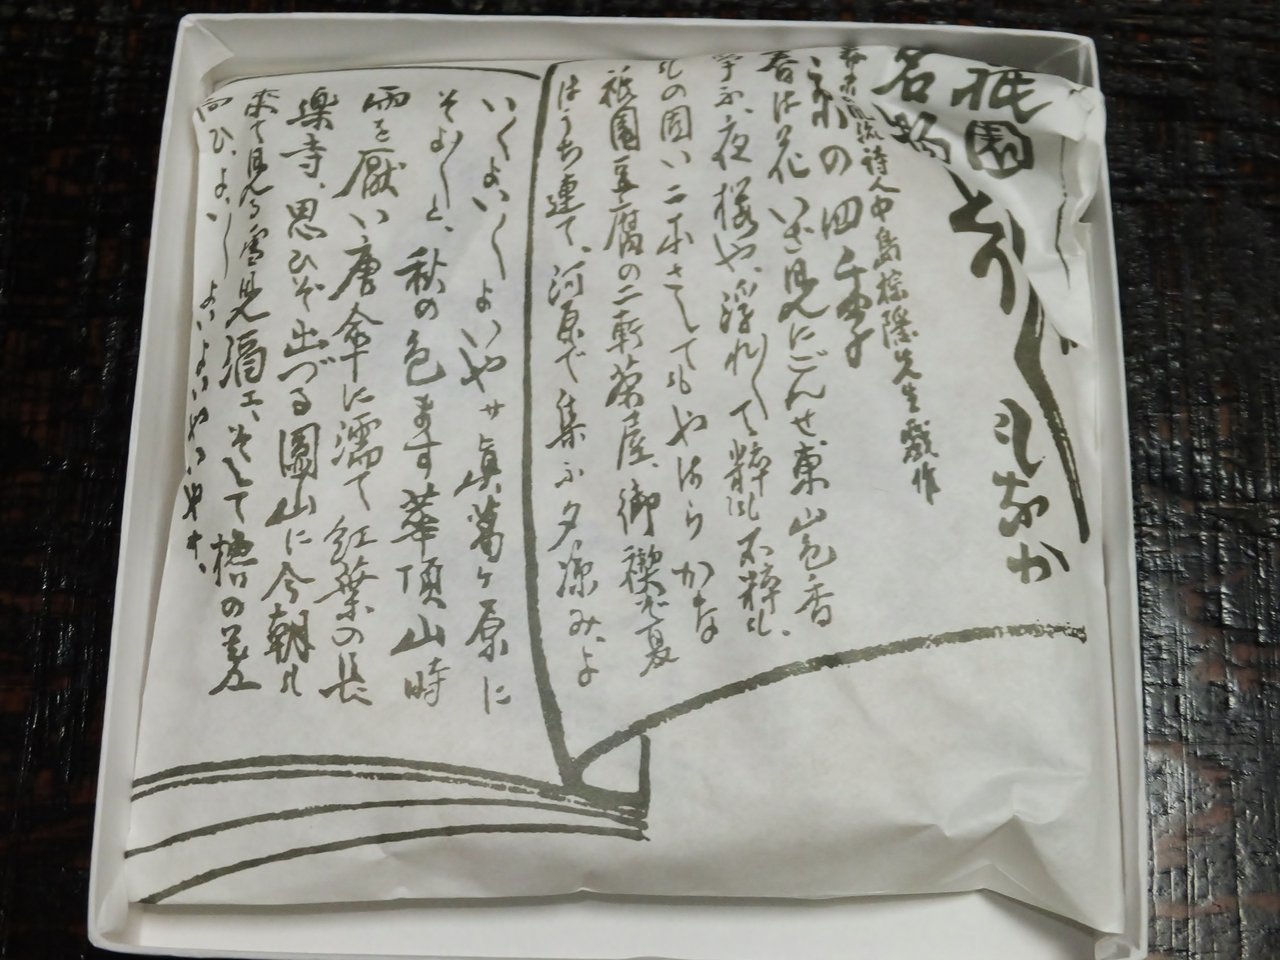 祇園
名物
もなか
春来風流詩人中島棕隠先生戯作
京の四季
春は花いざ見にごんせ東山色香
争ふ夜桜や、浮れ〱て粋も不粋も、
もの固い二本さしてもやはらかな
祇園豆腐の二軒茶屋、御禊ぞ夏
はうち連て、河原で集ふ夕凉み、よ
いくよい〱よいやサ眞葛ヶ原に
そよ〱と、秋の色ます華頂山時
雨を厭い唐傘に濡て紅葉の長
楽寺、思ひぞ出づる圓山に今朝も
来て見る雪見酒エ、そして櫓の差
向ひ、よい〱よいよいやいやサ、